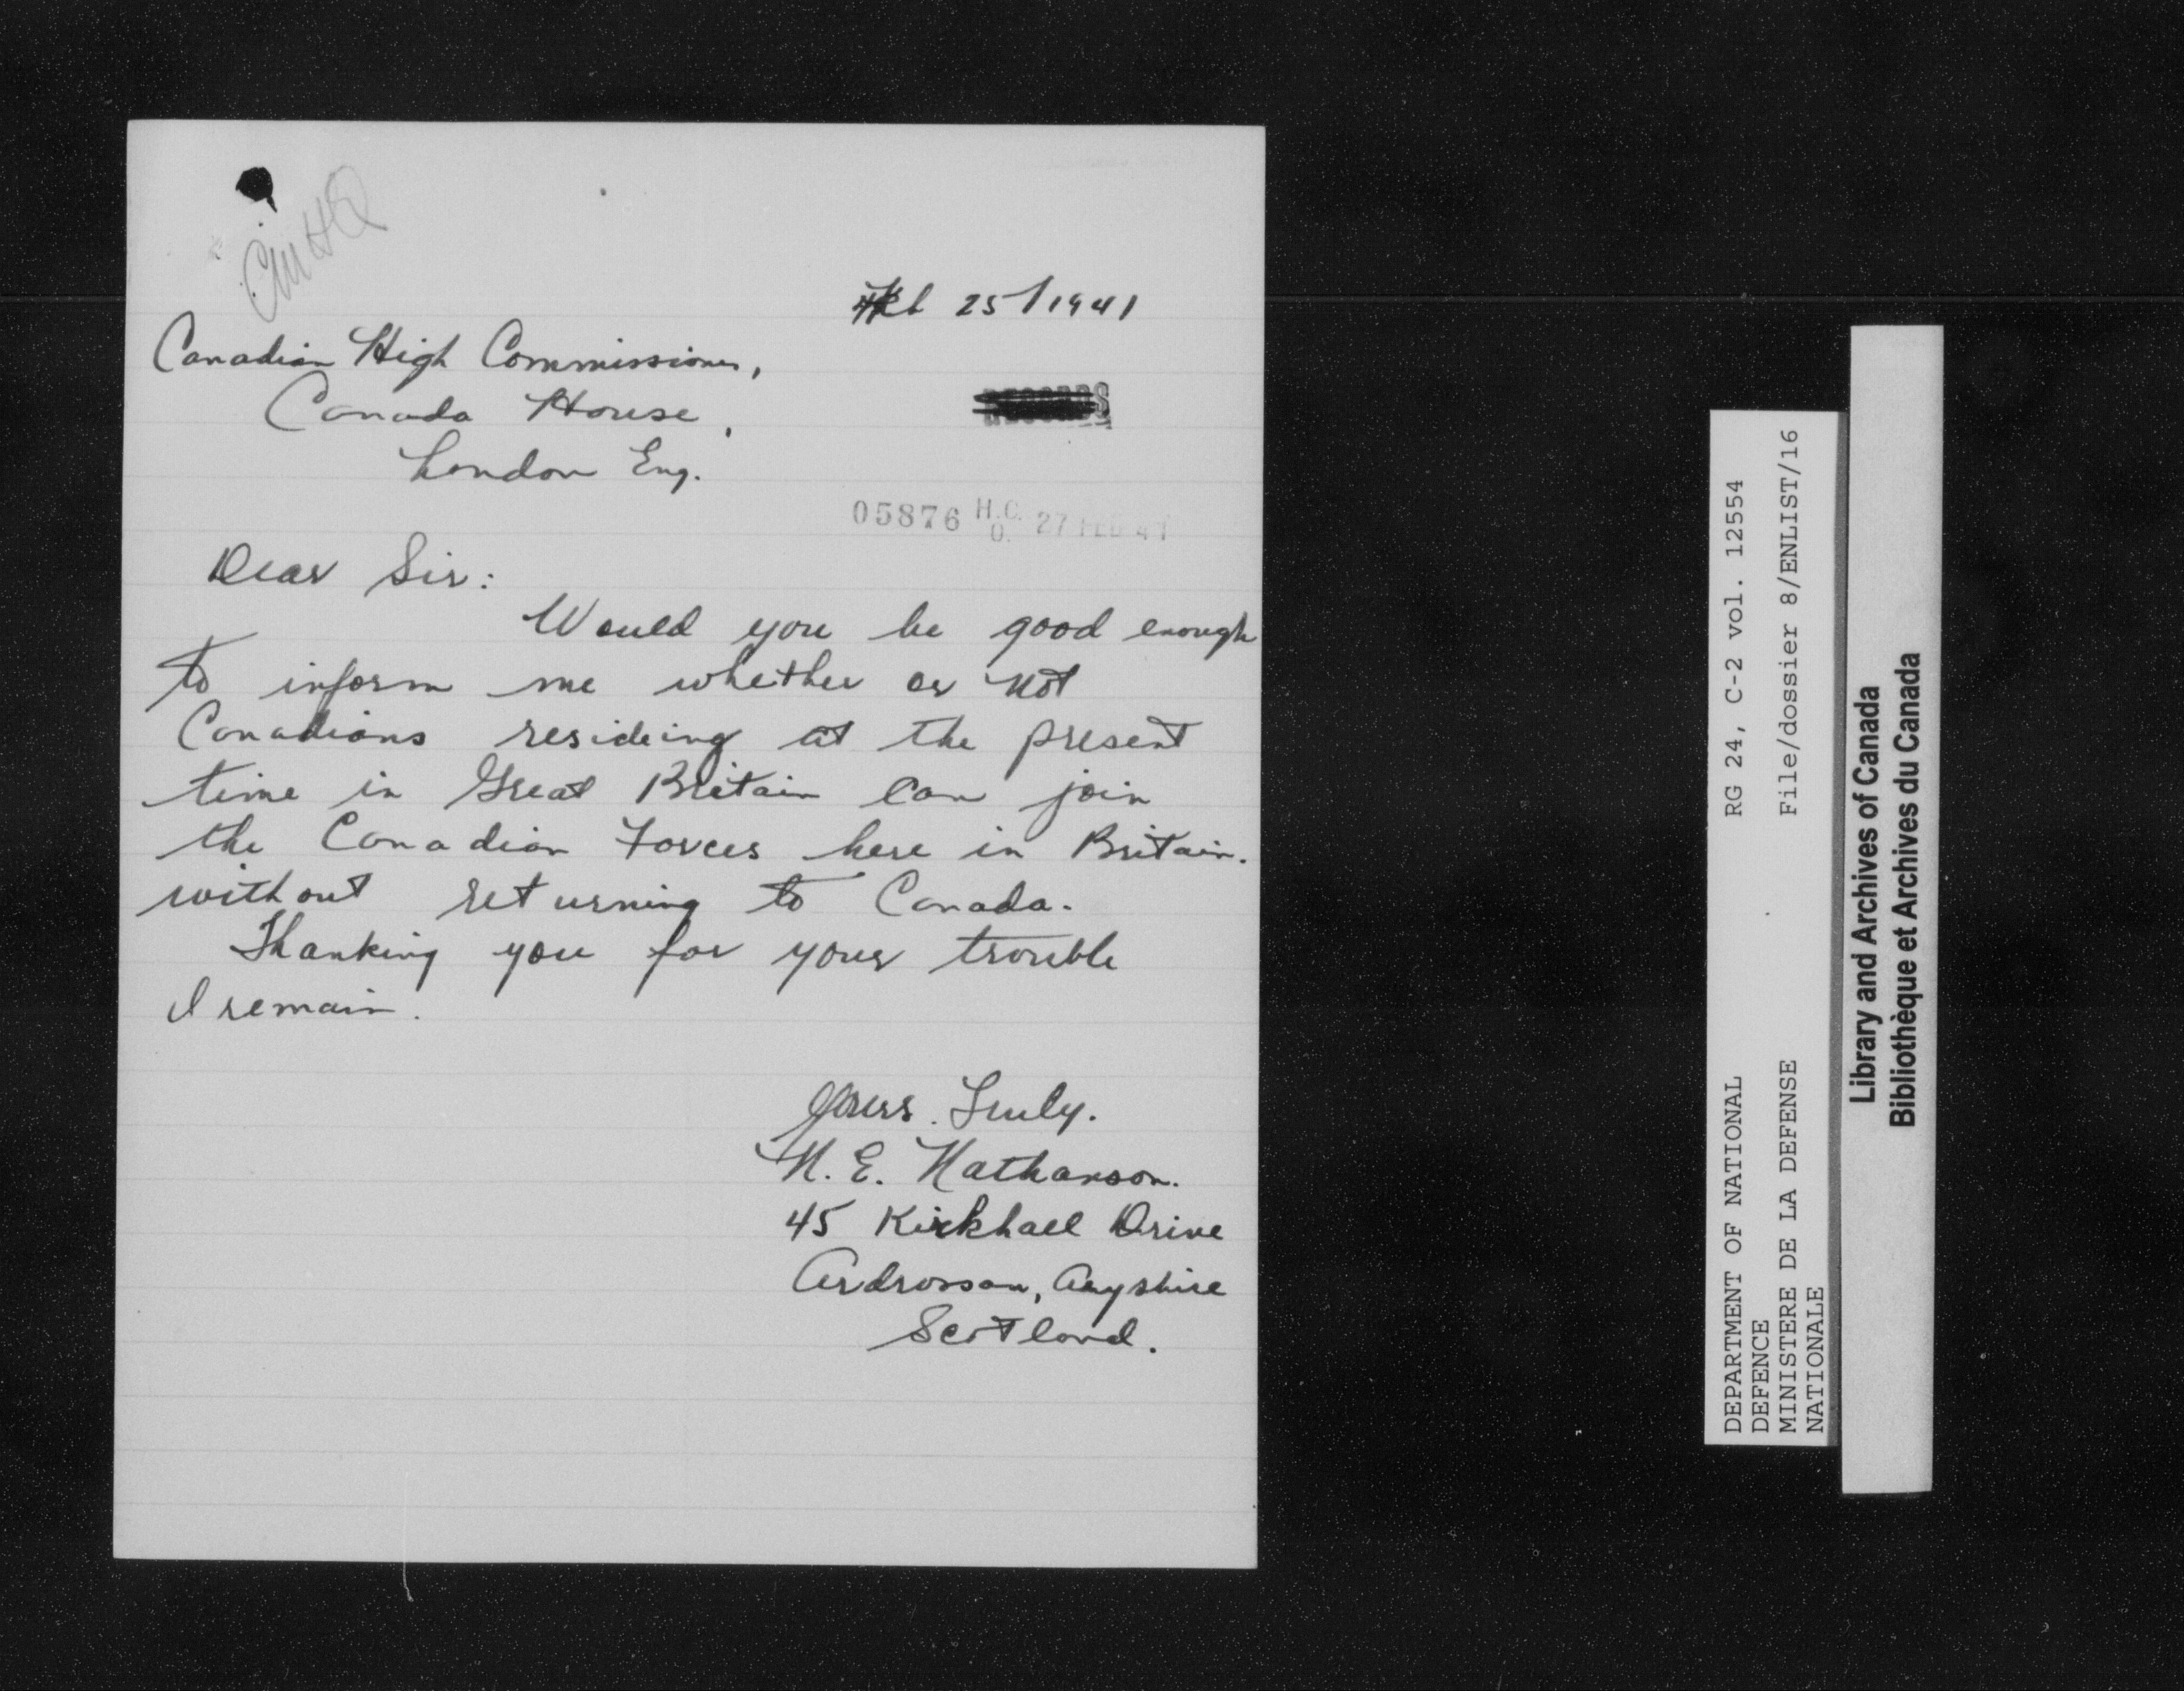 CMHQ
Feb 25/1941
Canadian High Commissioner,
Canada House,
London Eng.
05876 H.C.O. 27 FEB 41
Dear Sir:
Would you be good enough
to inform me whether or not
Canadians resideing at the present
time in Great Britain can join
the Canadian Forces here in Britain.
without returning to Canada.
Thanking you for your trouble
I remain.
Yours Truly.
N. E. Nathanson.
45 Kirkhall Drive
Ardrossan, Aryshire
Scotland.
DEPARTMENT OF NATIONAL RG 24, C-2 vol. 12554
DEFENCE
MINISTERE DE LA DEFENSE File/dossier 8/ENLIST/16
NATIONALE
Library and Archives of Canada
Bibliothèque et Archives du Canada